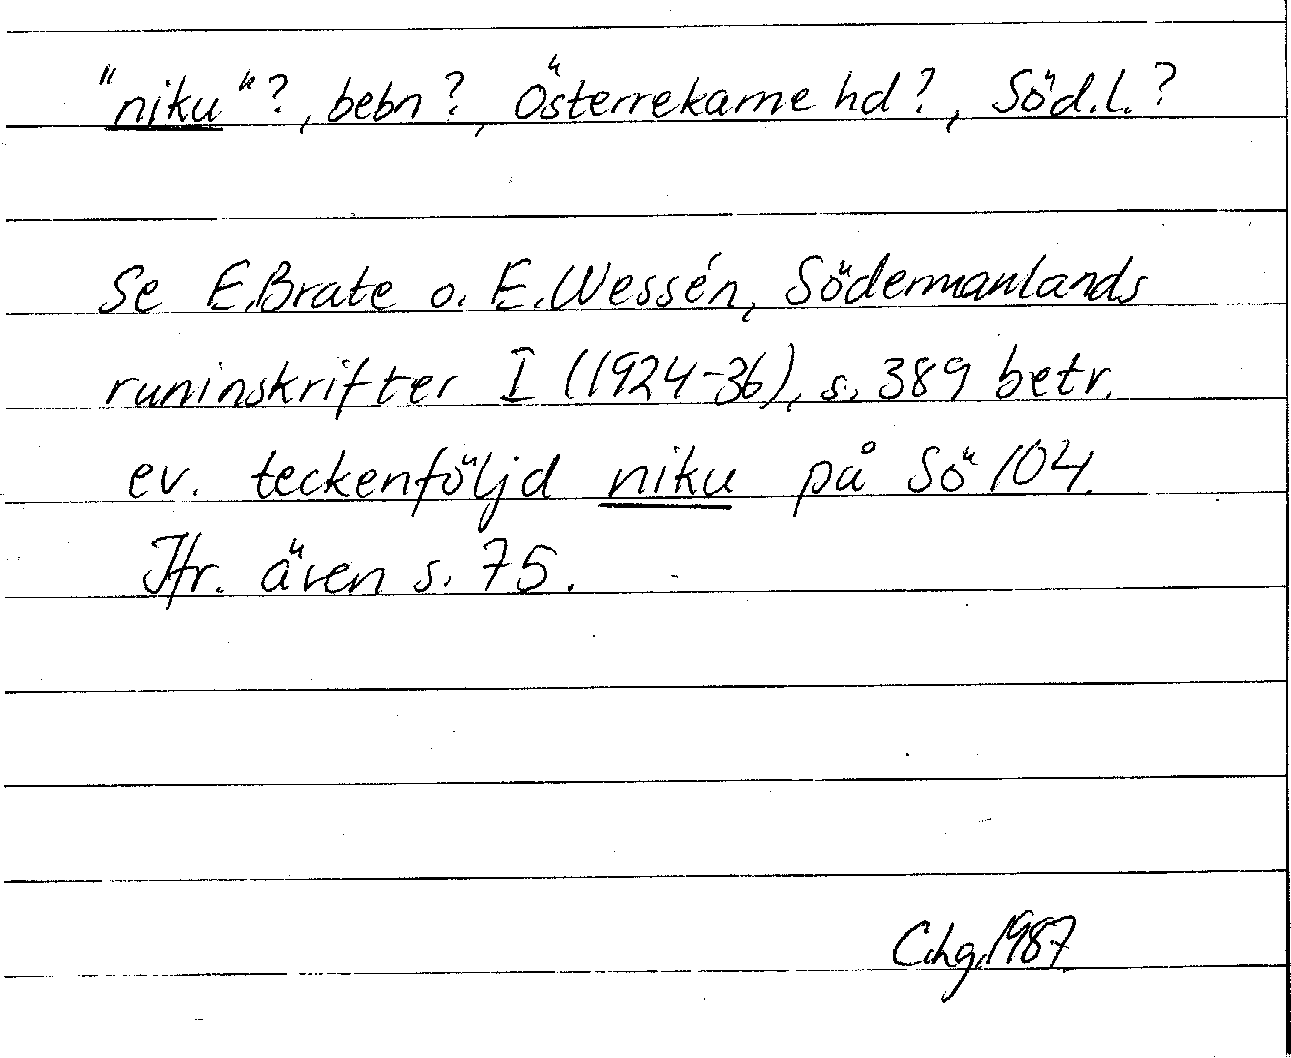 "niku"?, bebn?, Österrekarne hd?, Söd.l.?
Se E.Brate o. E.Wessén, Södermanlands
runinskrifter I (1924-36), s. 389 betr.
ev. teckenföljd niku på Sö 104.
Jfr. även s. 75.
C.hg. 1987